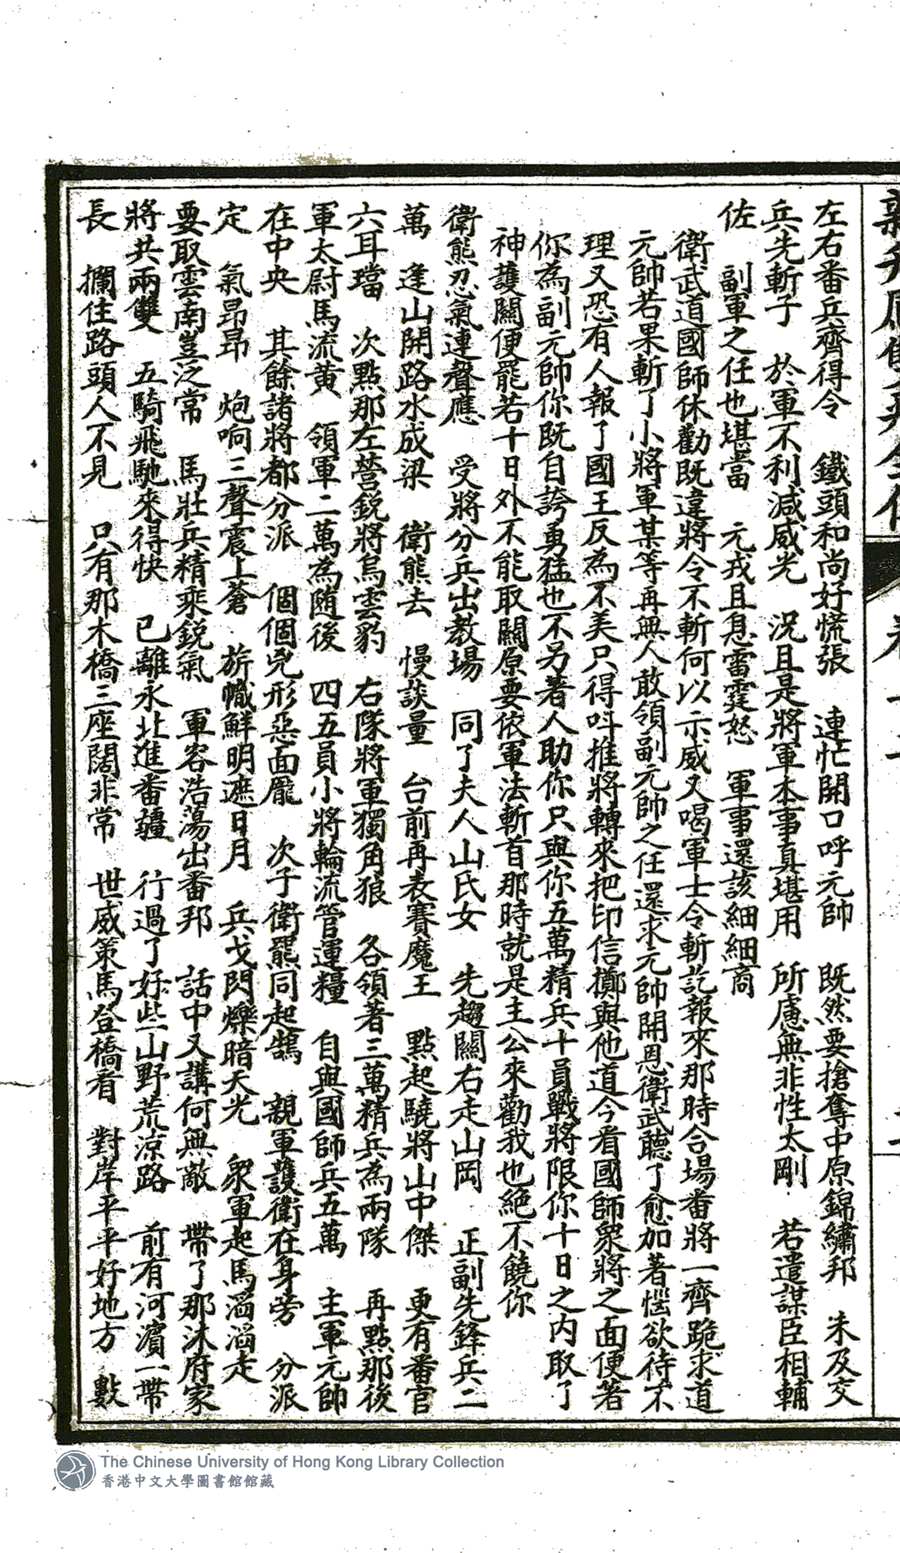 左右番兵齊得令　鐵頭和尚好慌張　連忙開口呼元帥　既然要搶奪中原錦繡邦　未及交
兵先斬子　於軍不利減威光　況且是將軍本事真堪用　所慮無非性太剛　若遣謀臣相輔
佐　副軍之任也堪當　元戎且息雷霆怒　軍事還該細細商
衛武道國師休勸既違將令不斬何以示威又喝軍士令斬訖報來那時合場番將一齊跪求道
元帥若果斬了小將軍某等再無人敢領副元帥之任還求元帥開恩衛武聽了愈加著惱欲待不
理又恐有人報了國王反為不美只得呌推將轉來把印信擲與他道今看國師眾將之面便著
你為副元帥你既自誇勇猛也不另著人助你只與你五萬精兵十員戰將限你十日之內取了
神護關便罷若十日外不能取關原要依軍法斬首那時就是主公來勸我也絕不饒你
衛熊忍氣連聲應　受將分兵出教場　同了夫人山氏女　先趨關右走山岡　正副先鋒兵二
萬　逢山開路水成梁　衛熊去　慢談量　台前再表賽魔王　點起驍將山中傑　更有番官
六耳璫　次點那左營銳將烏雲豹　右隊將軍獨角狼　各領著三萬精兵為兩隊　再點那後
軍太尉馬流黃　領軍二萬為隨後　四五員小將輪流管運糧　自與國師兵五萬　主軍元帥
在中央　其餘諸將都分派　個個兇形惡面龐　次子衛羆同起鵠　親軍護衛在身旁　分派
定　氣昂昂　炮响三聲震上蒼　旂幟鮮明遮日月　兵戈閃爍暗天光　眾軍起馬滔滔走
要取雲南豈泛常　馬壯兵精乘銳氣　軍容浩蕩出番邦　話中又講何無敵　帶了那沐府家
將共兩雙　五騎飛馳來得快　已離永北進番疆　行過了好些山野荒涼路　前有河濱一帶
長　攔住路頭人不見　只有那木橋三座闊非常　世威策馬登橋看　對岸平平好地方　數
The Chinese University of Hong Kong Library Collection
香港中文大學圖書館館藏